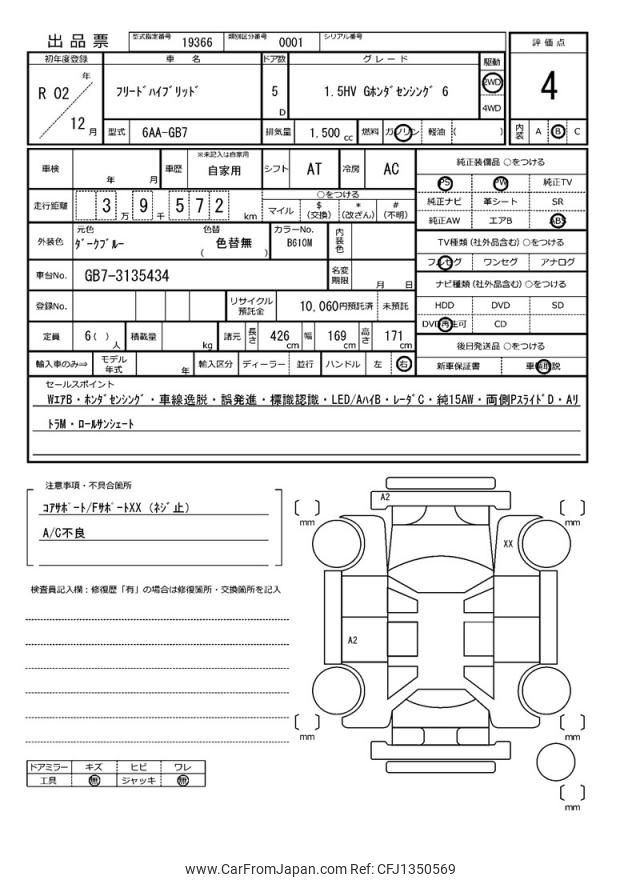 出品票 型式指定番号 19366 類別区分番号 0001 シリアル番号
評価点
4
初年度登録 車名 ドア数 グレード 駆動
R 02 年 12 月
フリードハイブリッド 5 D 1.5HV Gホンダセンシング 6 2WD 4WD
型式 6AA-GB7 排気量 1.500 cc 燃料 ガソリン 軽油 ( )
内装 A B C
車検 年 月 車歴 ※未記入は自家用 自家用 シフト AT 冷房 AC
純正装備品 ○をつける
PS PW 純正TV
純正ナビ 革シート SR
純正AW エアB ABS
走行距離 3 万 9 千 5 7 2 km
○をつける
マイル $ (交換) * (改ざん) # (不明)
TV種類 (社外品含む) ○をつける
フルセグ ワンセグ アナログ
外装色 元色 ダークブルー 色替 ( 色替無 ) カラーNo. B610M 内装色
車台No. GB7-3135434 名変期限 月 日
ナビ種類 (社外品含む) ○をつける
HDD DVD SD
DVD再生可 CD
登録No. リサイクル預託金 10,060円預託済 未預託
定員 6 ( ) 人 積載量 kg 諸元 長さ 426 cm 幅 169 cm 高さ 171 cm
後日発送品 ○をつける
新車保証書 車輌取説
輸入車のみ⇒ モデル年式 年 輸入区分 ディーラー 並行 ハンドル 左 右
セールスポイント
WエアB・ホンダセンシング・車線逸脱・誤発進・標識認識・LED/AハイB・レーダC・純15AW・両側PスライドD・Aリ
トラM・ロールサンシェート
注意事項・不具合箇所
コアサポート/FサポートXX (ネジ止)
A/C不良
検査員記入欄：修復歴「有」の場合は修復箇所・交換箇所を記入
A2
mm
mm
XX
A2
mm
mm
mm
ドアミラー キズ ヒビ ワレ
工具 無 ジャッキ 無
www.CarFromJapan.com Ref: CFJ1350569